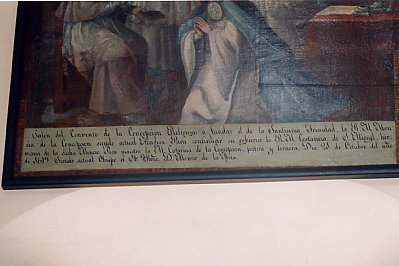 Salen del Convento de la Concepcion Religiosas a fundar el de la Santisima Trinidad, la R. M. Men
cia de la Concepcion siendo actual Abadesa Para continuar su gobierno la R. M. Costancia de S. Miguel, her
mana de la dicha Para maestra la M. Catarina de la Concepcion, portera y tornera. Dia 21 de Octubre del año
de 1619. Siendo actual Obispo el Sr. Illmo. D. Alonso de la Mota.